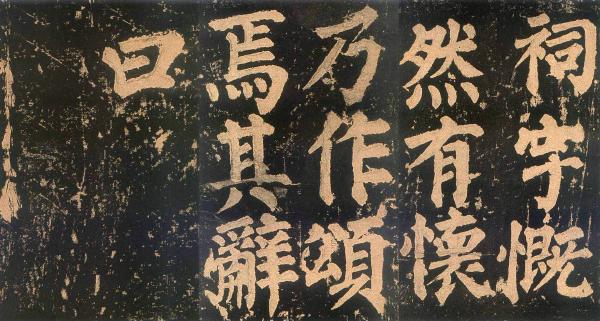 祠宇慨
然有懷
乃作頌
焉其辭
曰